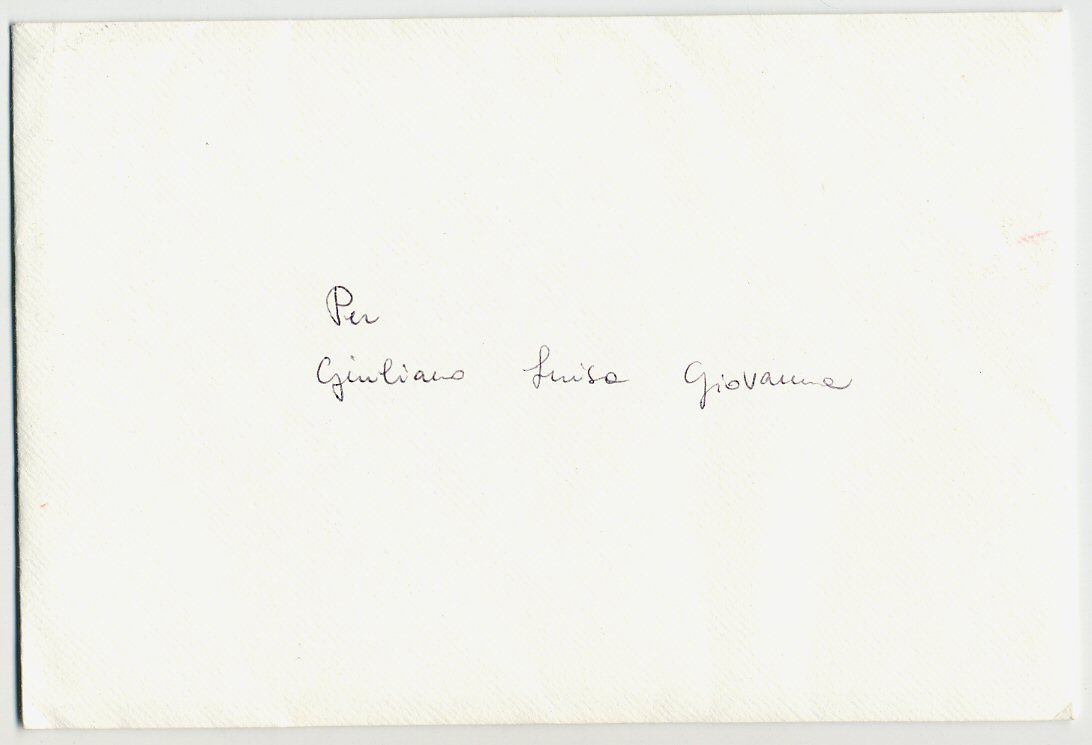 Per
Giuliano Luisa Giovanna